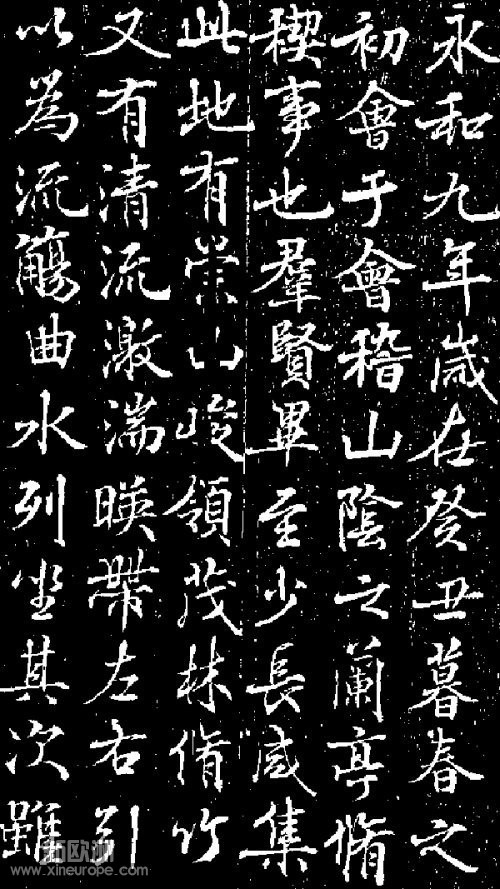 永和九年歲在癸丑暮春之
初會于會稽山陰之蘭亭脩
稧事也羣賢畢至少長咸集
此地有崇山峻領茂林脩竹
又有清流激湍暎帶左右引
以為流觴曲水列坐其次雖
www.xineurope.com